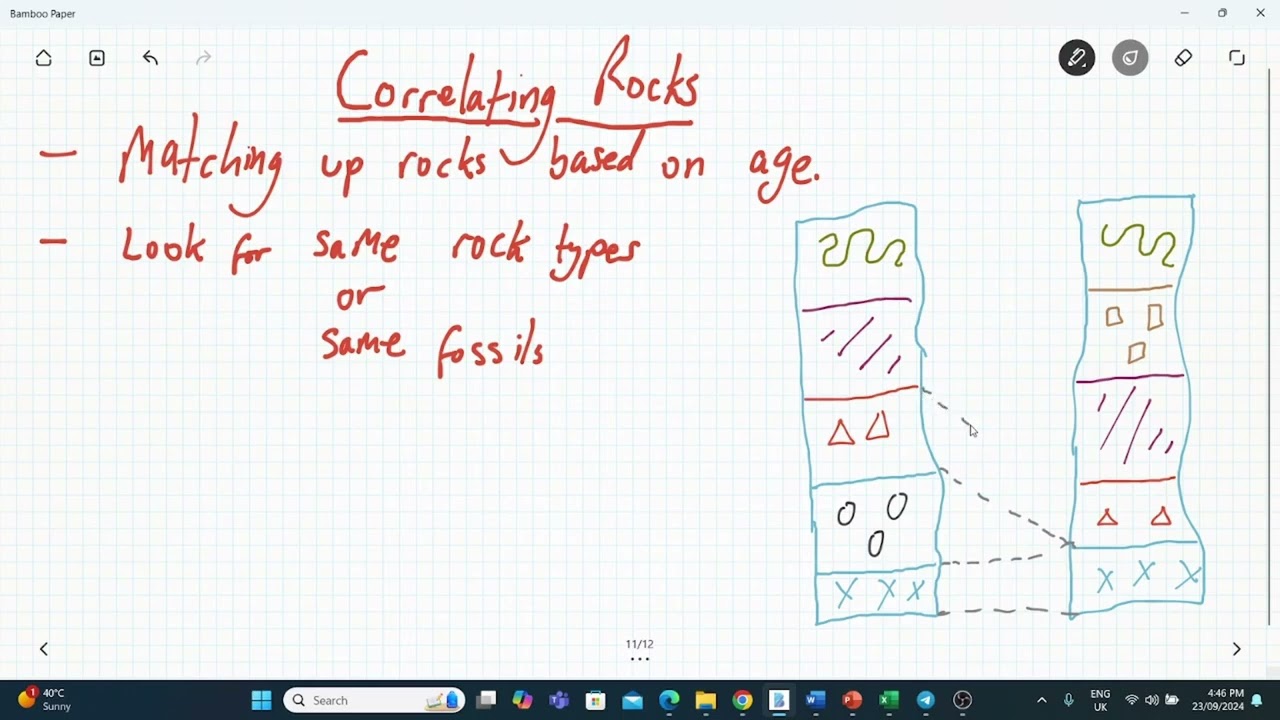 Bamboo Paper
Correlating Rocks
- Matching up rocks based on age.
- Look for same rock types
or
same fossils
11/12
1
40°C
Sunny
Search
ENG
UK
4:46 PM
23/09/2024